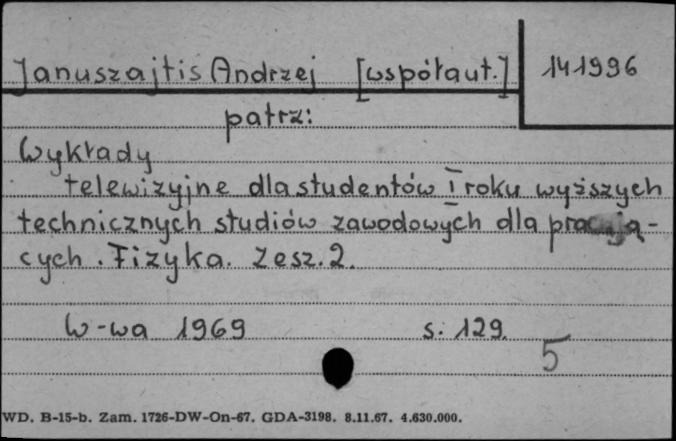 Januszajtis Andrzej [współaut.] 141996
patrz:
Wykłady
telewizyjne dla studentów I roku wyższych
technicznych studiów zawodowych dla pracują-
cych. Fizyka. Zesz. 2.
W-wa 1969 s. 129.
5
WD. B-15-b. Zam. 1726-DW-On-67. GDA-3198. 8.11.67. 4.630.000.